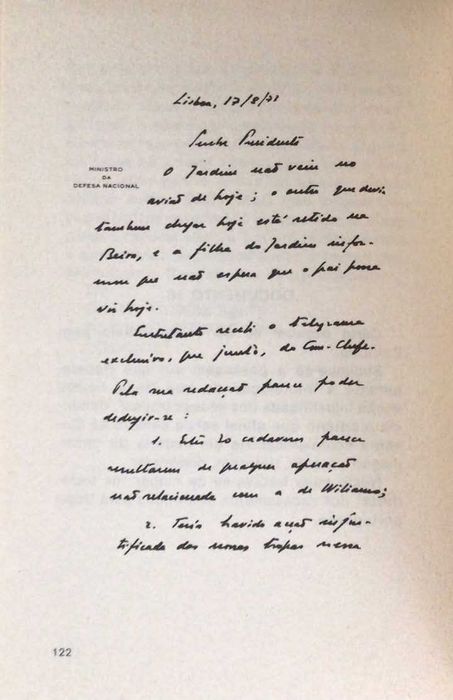 Lisboa, 17/8/73
Senhor Presidente
MINISTRO
DA
DEFESA NACIONAL
O Jardim não veio no
avião de hoje; o outro que devia
tambem chegar hoje está retido na
Beira, e a filha do Jardim infor-
mou que não espera que o pai possa
vir hoje.
Entretanto recebi o telegrama
exclusivo, que junto, do Com-Chefe.
Pela sua redacção parece poder
deduzir-se:
1. Estes 20 cadaveres parece
resultarem de qualquer operação
não relacionada com a de Wiliamo;
2. Teria havido acção injus-
tificada das nossas tropas nessa
122